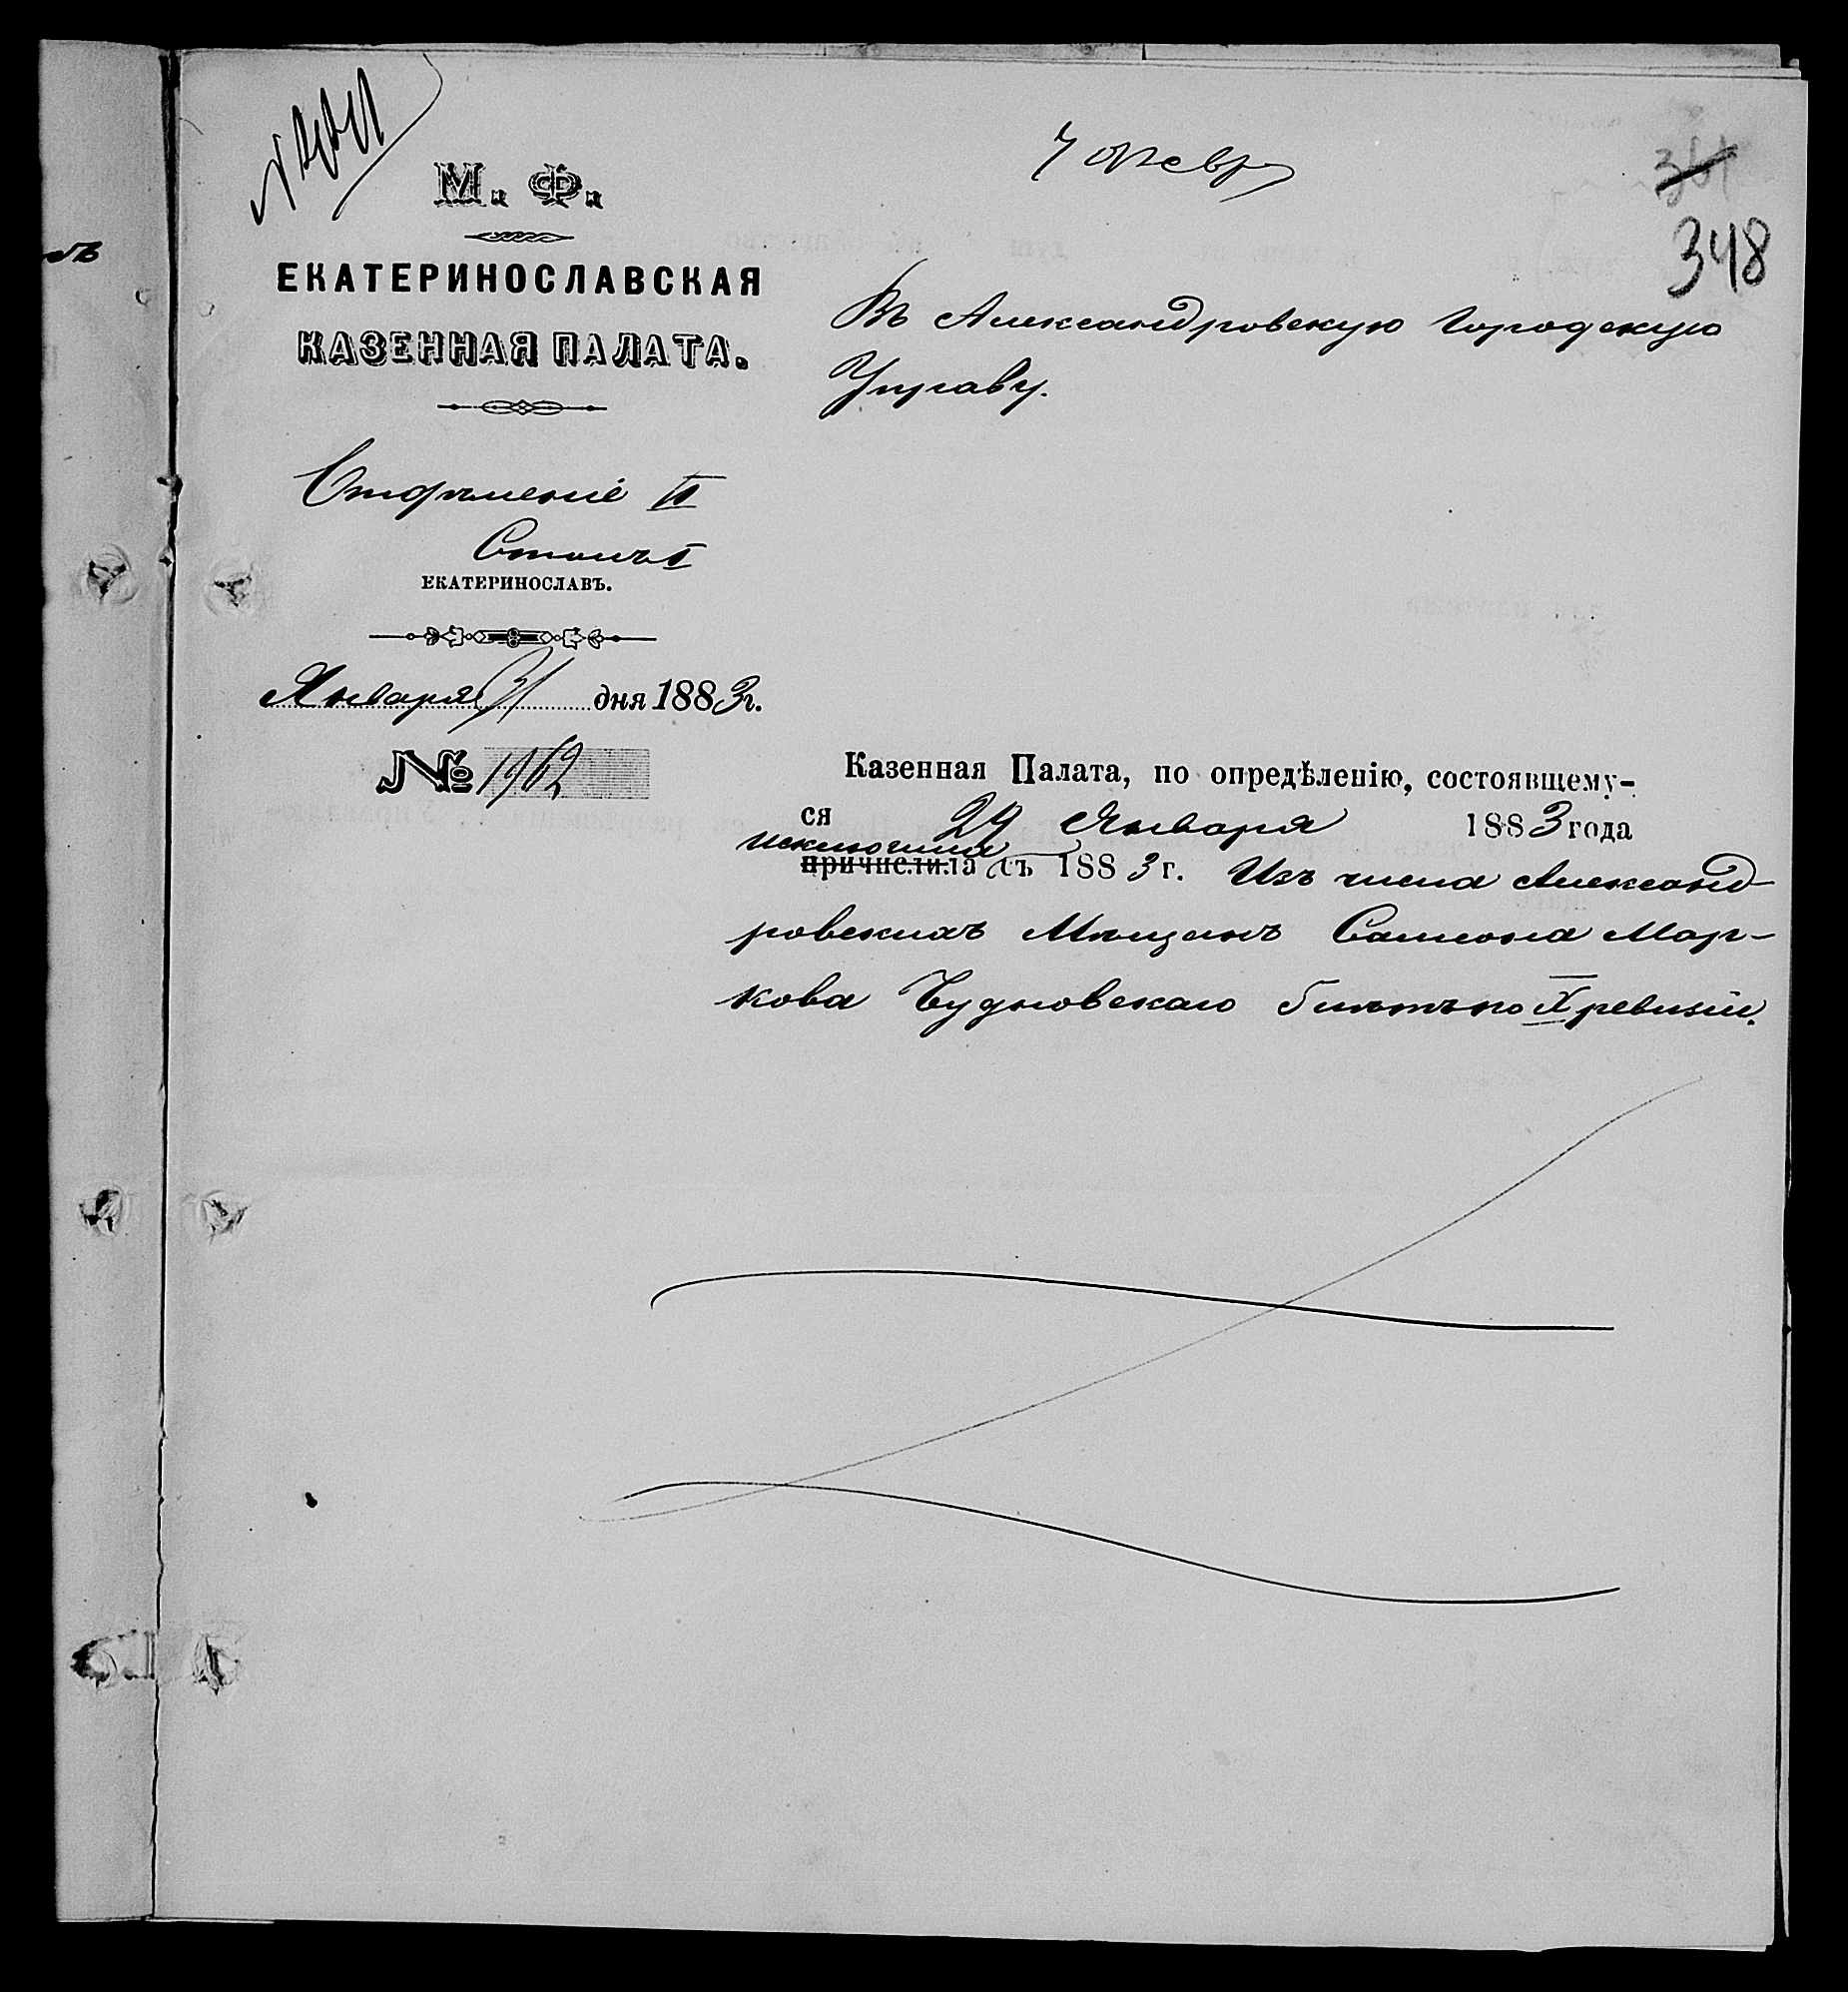 7 Февр
361
348
М. Ф.
ЕКАТЕРИНОСЛАВСКАЯ
КАЗЕННАЯ ПАЛАТА.
Отдѣленіе II
Столъ I
ЕКАТЕРИНОСЛАВЪ.
Января 31 дня 1883 г.
№ 1962
Въ Александровскую Городскую
Управу.
Казенная Палата, по опредѣленію, состоявшему-
ся 29 Января 1883 года
исключила
причислила съ 1883 г. Изъ числа Александ-
ровскихъ Мѣщанъ Самсона Мар-
кова Чудновскаго 5 лѣтъ по X ревизіи.